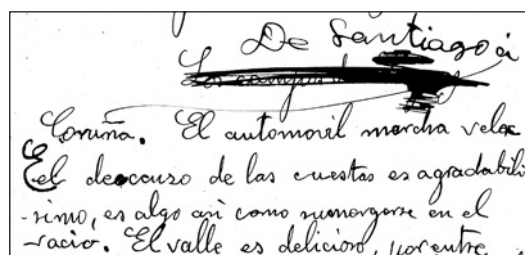 De Santiago á
Coruña. El automovil marcha veloz
El descanso de las cuestas es agradabili
-simo, es algo asi como sumergirse en el
vacio. El valle es delicioso, por entre